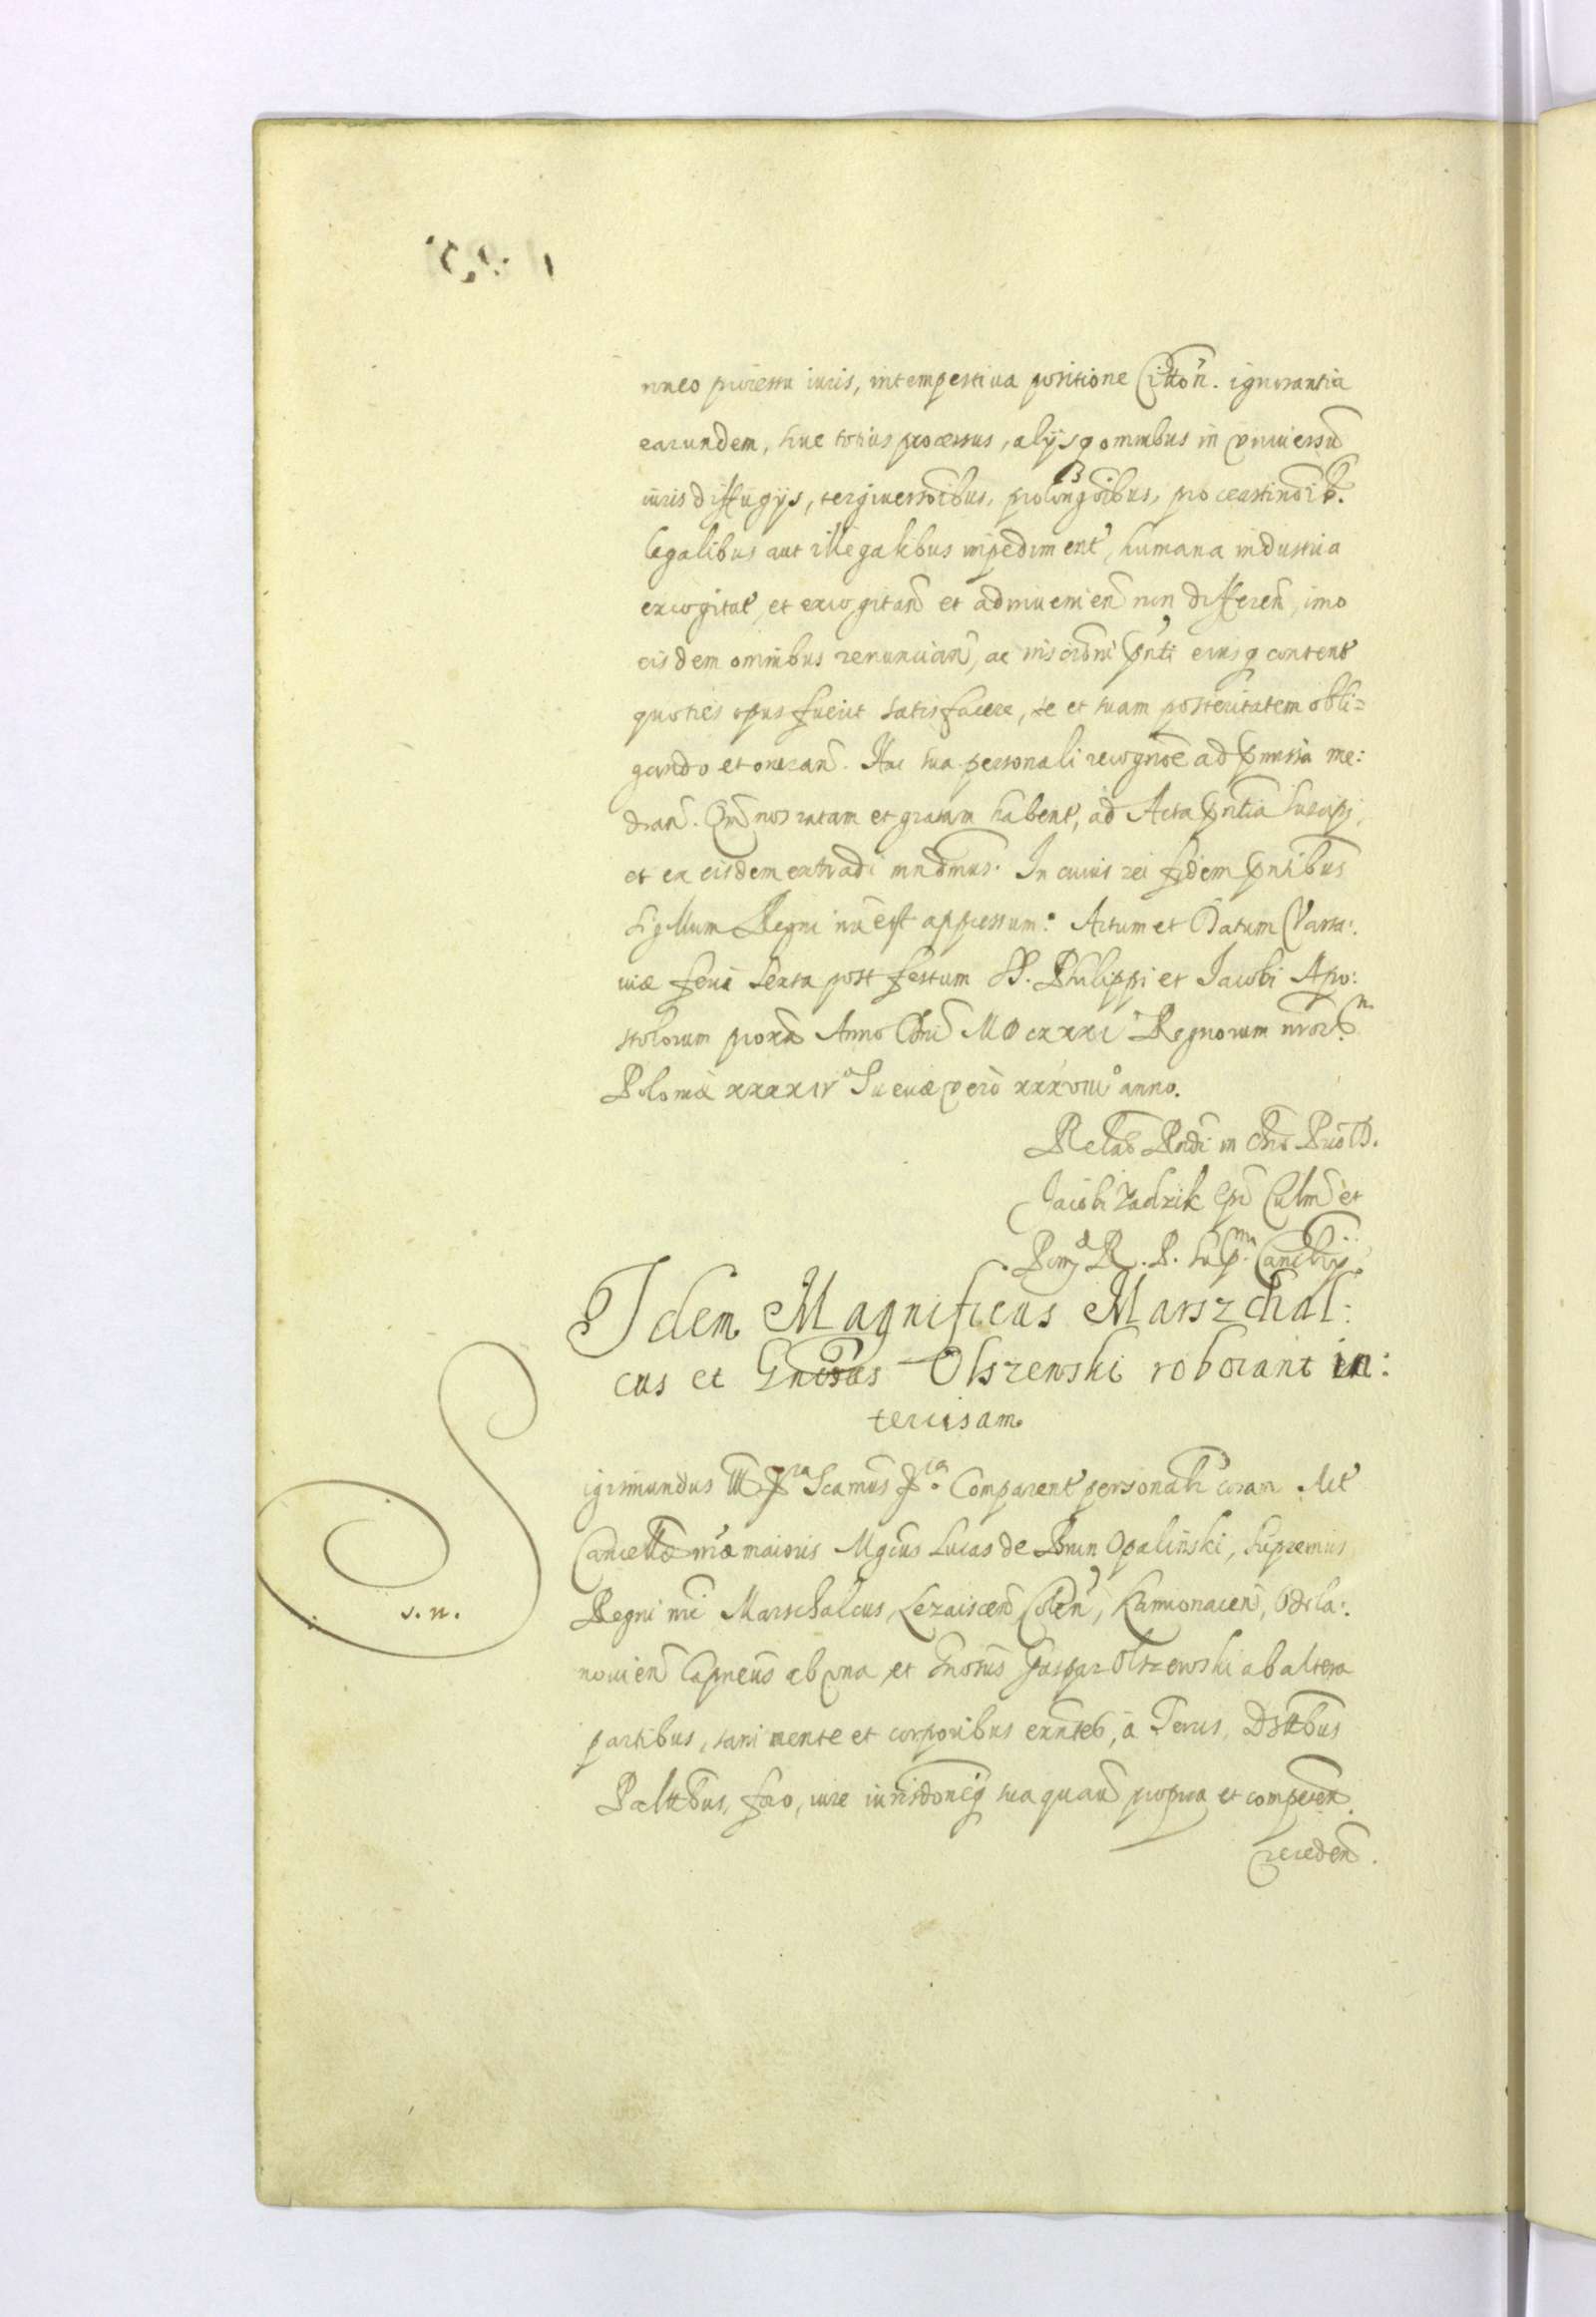 processu iuris, intempestiua positione Citton. ignorantia
earundem, siue totius processus, alijsq omnibus in vniuersu
iuris diffugijs, tergiuersoibus, prolongoibus, procrastinoib.
legalibus aut illegalibus impediment, humana industria
excogitat, et excogitan et adinuenien non differen, imo
eisdem omnibus renuncian, ac inscriони pnti eiusq content
quoties opus fuerit satisfacere, se et suam posteritatem obli=
gando et oneran. Hac sua personali recognoe ad pmissa me:
dian. Qm nos ratam et gratam habent, ad Acta pntia suscipi,
et ex eisdem extradi mndmus. In cuius rei fidem pntibus
sigillum Regni nri est appressum. Actum et Datum Varsa:
uiæ feria sexta post festum SS. Philippi et Jacobi Apo:
stolorum prox Anno Dni MDCXXXI Regnorum nror
Poloniæ XXXXIV Sueciæ vero XXXVIII anno.
Relao Rndi in Chro Pris D.
Jacobi Zadzik Epi Culm et
Pom R. P. Sup. Cancrij
Idem Magnificus Marszchal:
cus et Gnosus Olszewski roborant in:
tercisam.
Sigismundus III Significamus Comparent personalr coram Act
Cancellæ nræ maioris Mgcus Lucas de Bnin Opaliński, Supremus
Regni nri Marschalcus, Lezaiscen Colen, Kamionacen, Odola:
nouien Capneus ab vna, et Gnosus Gaspar Olszewski ab altera
partibus, sani mente et corporibus exntes, a Terris, Dsttbus
Palttbus, foro, iure iurisdoneq sua quaus propria et competen
receden.
s. n.